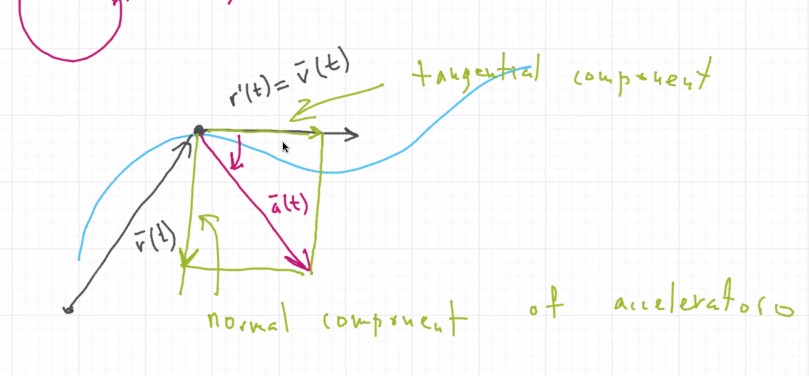 r'(t) = v̄(t)
tangential component
ā(t)
r̄(t)
normal component of acceleration